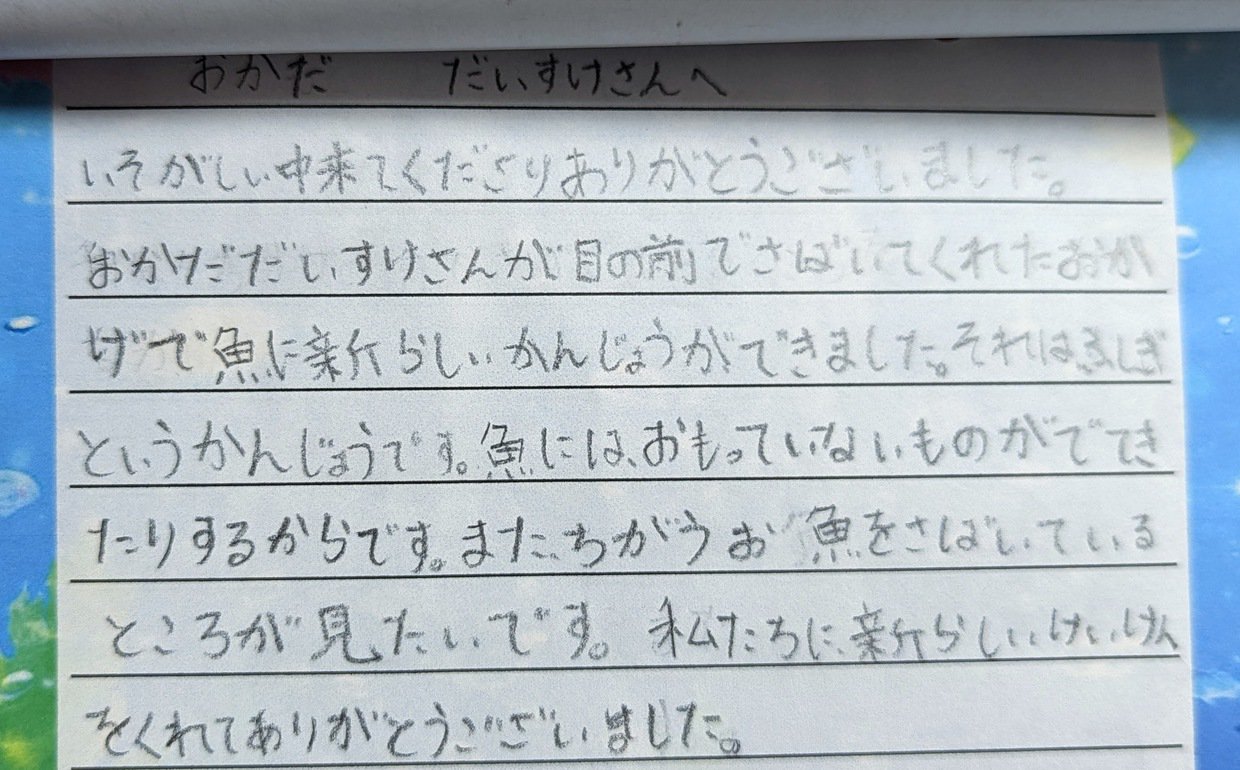 おかだ だいすけさんへ
いそがしい中来てくださりありがとうございました。
おかだだいすけさんが目の前でさばいてくれたおか
げで魚に新らしいかんじょうができました。それはふしぎ
というかんじょうです。魚には、おもっていないものがでてき
たりするからです。またちがうお魚をさばいている
ところが見たいです。私たちに新らしいけいけん
をくれてありがとうございました。